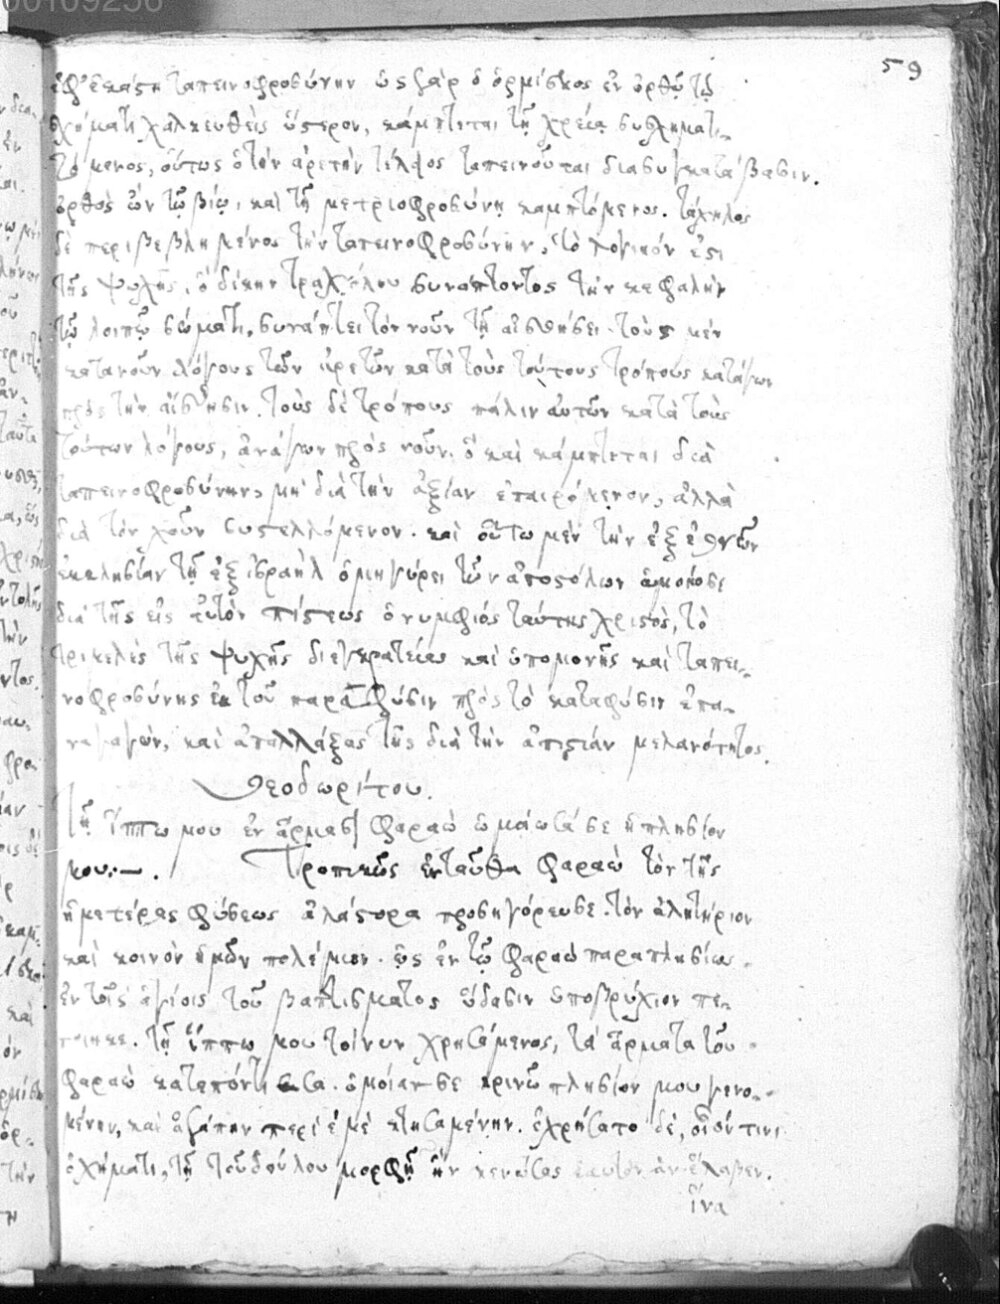 00109256
59
ἐφ' ἑκάστη ταπεινοφροσύνην ὡς γὰρ ὁ ὁρμίσκος ἐν ὀρθῷ τῷ
σχήματι χαλκευθεὶς ὕστερον, κάμπτεται τῇ χρείᾳ συσχηματι-
ζόμενος, οὕτως ὁ τὴν ἀρετὴν τέλειος ταπεινοῦται διὰ συγκατάβασιν.
ὀρθὸς ὢν τῷ βίῳ, καὶ τῇ μετριοφροσύνῃ καμπτόμενος. τράχηλος
δὲ περιβεβλημένος τὴν ταπεινοφροσύνην, τὸ λογικόν ἐστι
τῆς ψυχῆς, ὁ δίκην τραχήλου συνάπτοντος τὴν κεφαλὴν
τῷ λοιπῷ σώματι, συνάπτει τὸν νοῦν τῇ αἰσθήσει. τοὺς μὲν
κατὰ νοῦν λόγους τῶν ἀρετῶν κατὰ τοὺς τούτους τρόπους κατάγων
πρὸς τὴν αἴσθησιν. τοὺς δὲ τρόπους πάλιν αὐτῶν κατὰ τοὺς
τούτων λόγους, ἀνάγων πρὸς νοῦν. ὁ καὶ κάμπτεται διὰ
ταπεινοφροσύνην, μὴ διὰ τὴν ἀξίαν ἐπαιρόμενον, ἀλλὰ
διὰ τὸν χοῦν συστελλόμενον. καὶ οὕτω μὲν τὴν ἐξ ἐθνῶν
ἐκκλησίαν τῇ ἐξ ἰσραὴλ ὁμηγύρει τῶν ἀποστόλων ὡμοίωσε
διὰ τῆς εἰς αὐτὸν πίστεως ὁ νυμφίος ταύτης χριστὸς, τὸ
τριμελὲς τῆς ψυχῆς δι' ἐγκρατείας καὶ ὑπομονῆς καὶ ταπει-
νοφροσύνης ἐκ τοῦ παρὰ φύσιν πρὸς τὸ κατὰ φύσιν ἐπα-
ναγαγών, καὶ ἀπαλλάξας τῆς διὰ τὴν ἀπιστίαν μελανότητος.
Θεοδωρίτου.
Τῇ ἵππῳ μου ἐν ἅρμασι φαραὼ ὡμοίωσά σε ἡ πλησίον
μου:—. Τροπικῶς ἐνταῦθα φαραὼ τὸν τῆς
ἡμετέρας φύσεως ἀλάστορα προσηγόρευσε. τὸν ἀλητήριον
καὶ κοινὸν ἡμῶν πολέμιον. ὃς ἐν τῷ φαραὼ παραπλησίως
ἐν τοῖς ἁγίοις τοῦ βαπτίσματος ὕδασιν ὑποβρύχιον πε-
ποίηκε. τῇ ἵππῳ μου τοίνυν χρησάμενος, τὰ ἅρματα τοῦ
φαραὼ κατεπόντισα. ὁμοίαν σε κρινῶ πλησίον μου γενο-
μένην, καὶ ἀγάπην περὶ ἐμὲ κτησαμένην. ἐχρήσατο δὲ, οἷόν τινι
ὀχήματι, τῇ τοῦ δούλου μορφῇ ἣν κενώσας ἑαυτὸν ἀνέλαβεν.
ἵνα